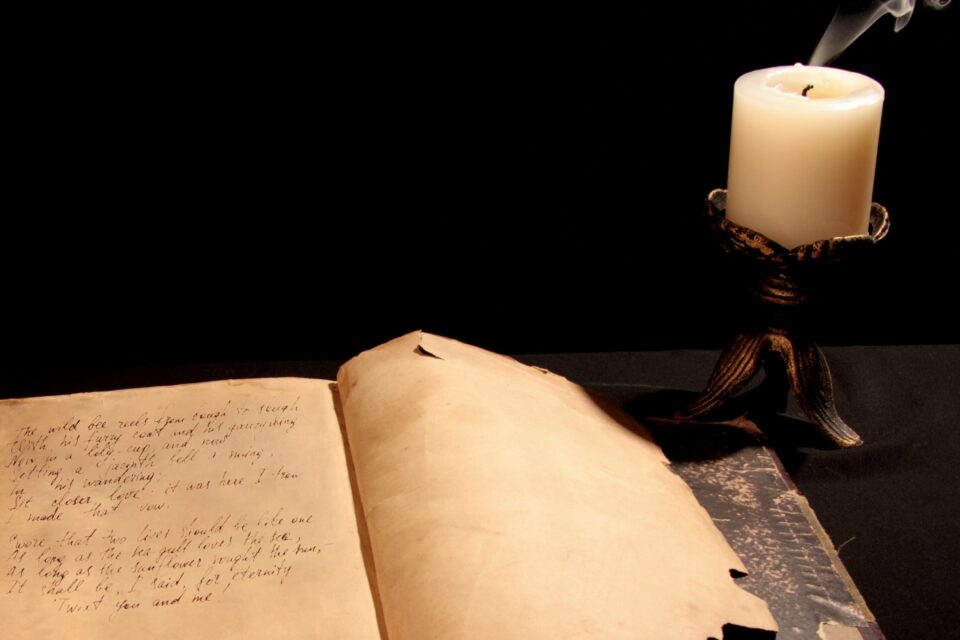 The wild bee reels from bough to bough
With his furry coat and his gauzy wing
Now in a lily-cup, and now
Setting a jacinth bell a swing,
In his wandering;
Sit closer, love: it was here I trow
I made that vow.
Swore that two lives should be like one
As long as the sea gull loves the sea,
As long as the sunflower sought the sun,-
It shall be, I said, for eternity
'Twixt you and me